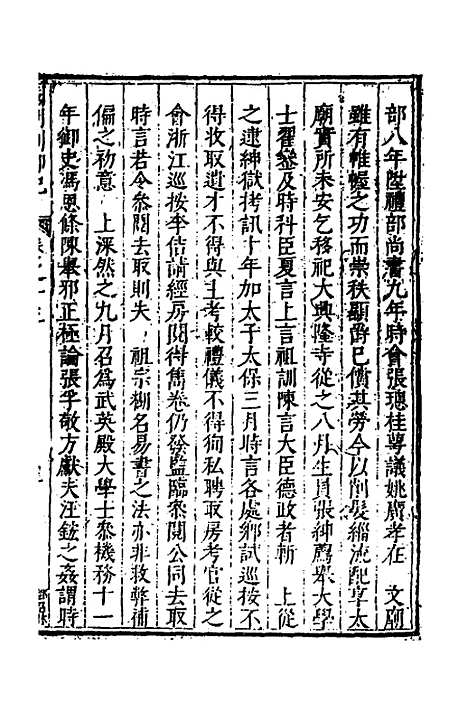 部八年陞禮部尚書九年時會張璁桂萼議姚廣孝在　文廟
雖有帷幄之功而崇秩顯爵已償其勞今以削髮緇流配享太
廟實所未安乞移祀大興隆寺從之八月生員張紳薦舉大學
士翟鑾及時科臣夏言上言祖訓陳言大臣德政者斬　上從
之逮紳獄拷訊十年加太子太保三月時言各處鄉試巡按不
得收取遺才不得與主考較禮儀不得狥私聘取房考官從之
會浙江巡按李佶請經房閱得雋卷仍發監臨叅閱公同去取
時言若令叅閱去取則失　祖宗糊名易書之法亦非救弊補
偏之初意　上深然之九月召為武英殿大學士叅機務十一
年御史馮恩條陳舉邪正極論張孚敬方獻夫汪鋐之姦謂時